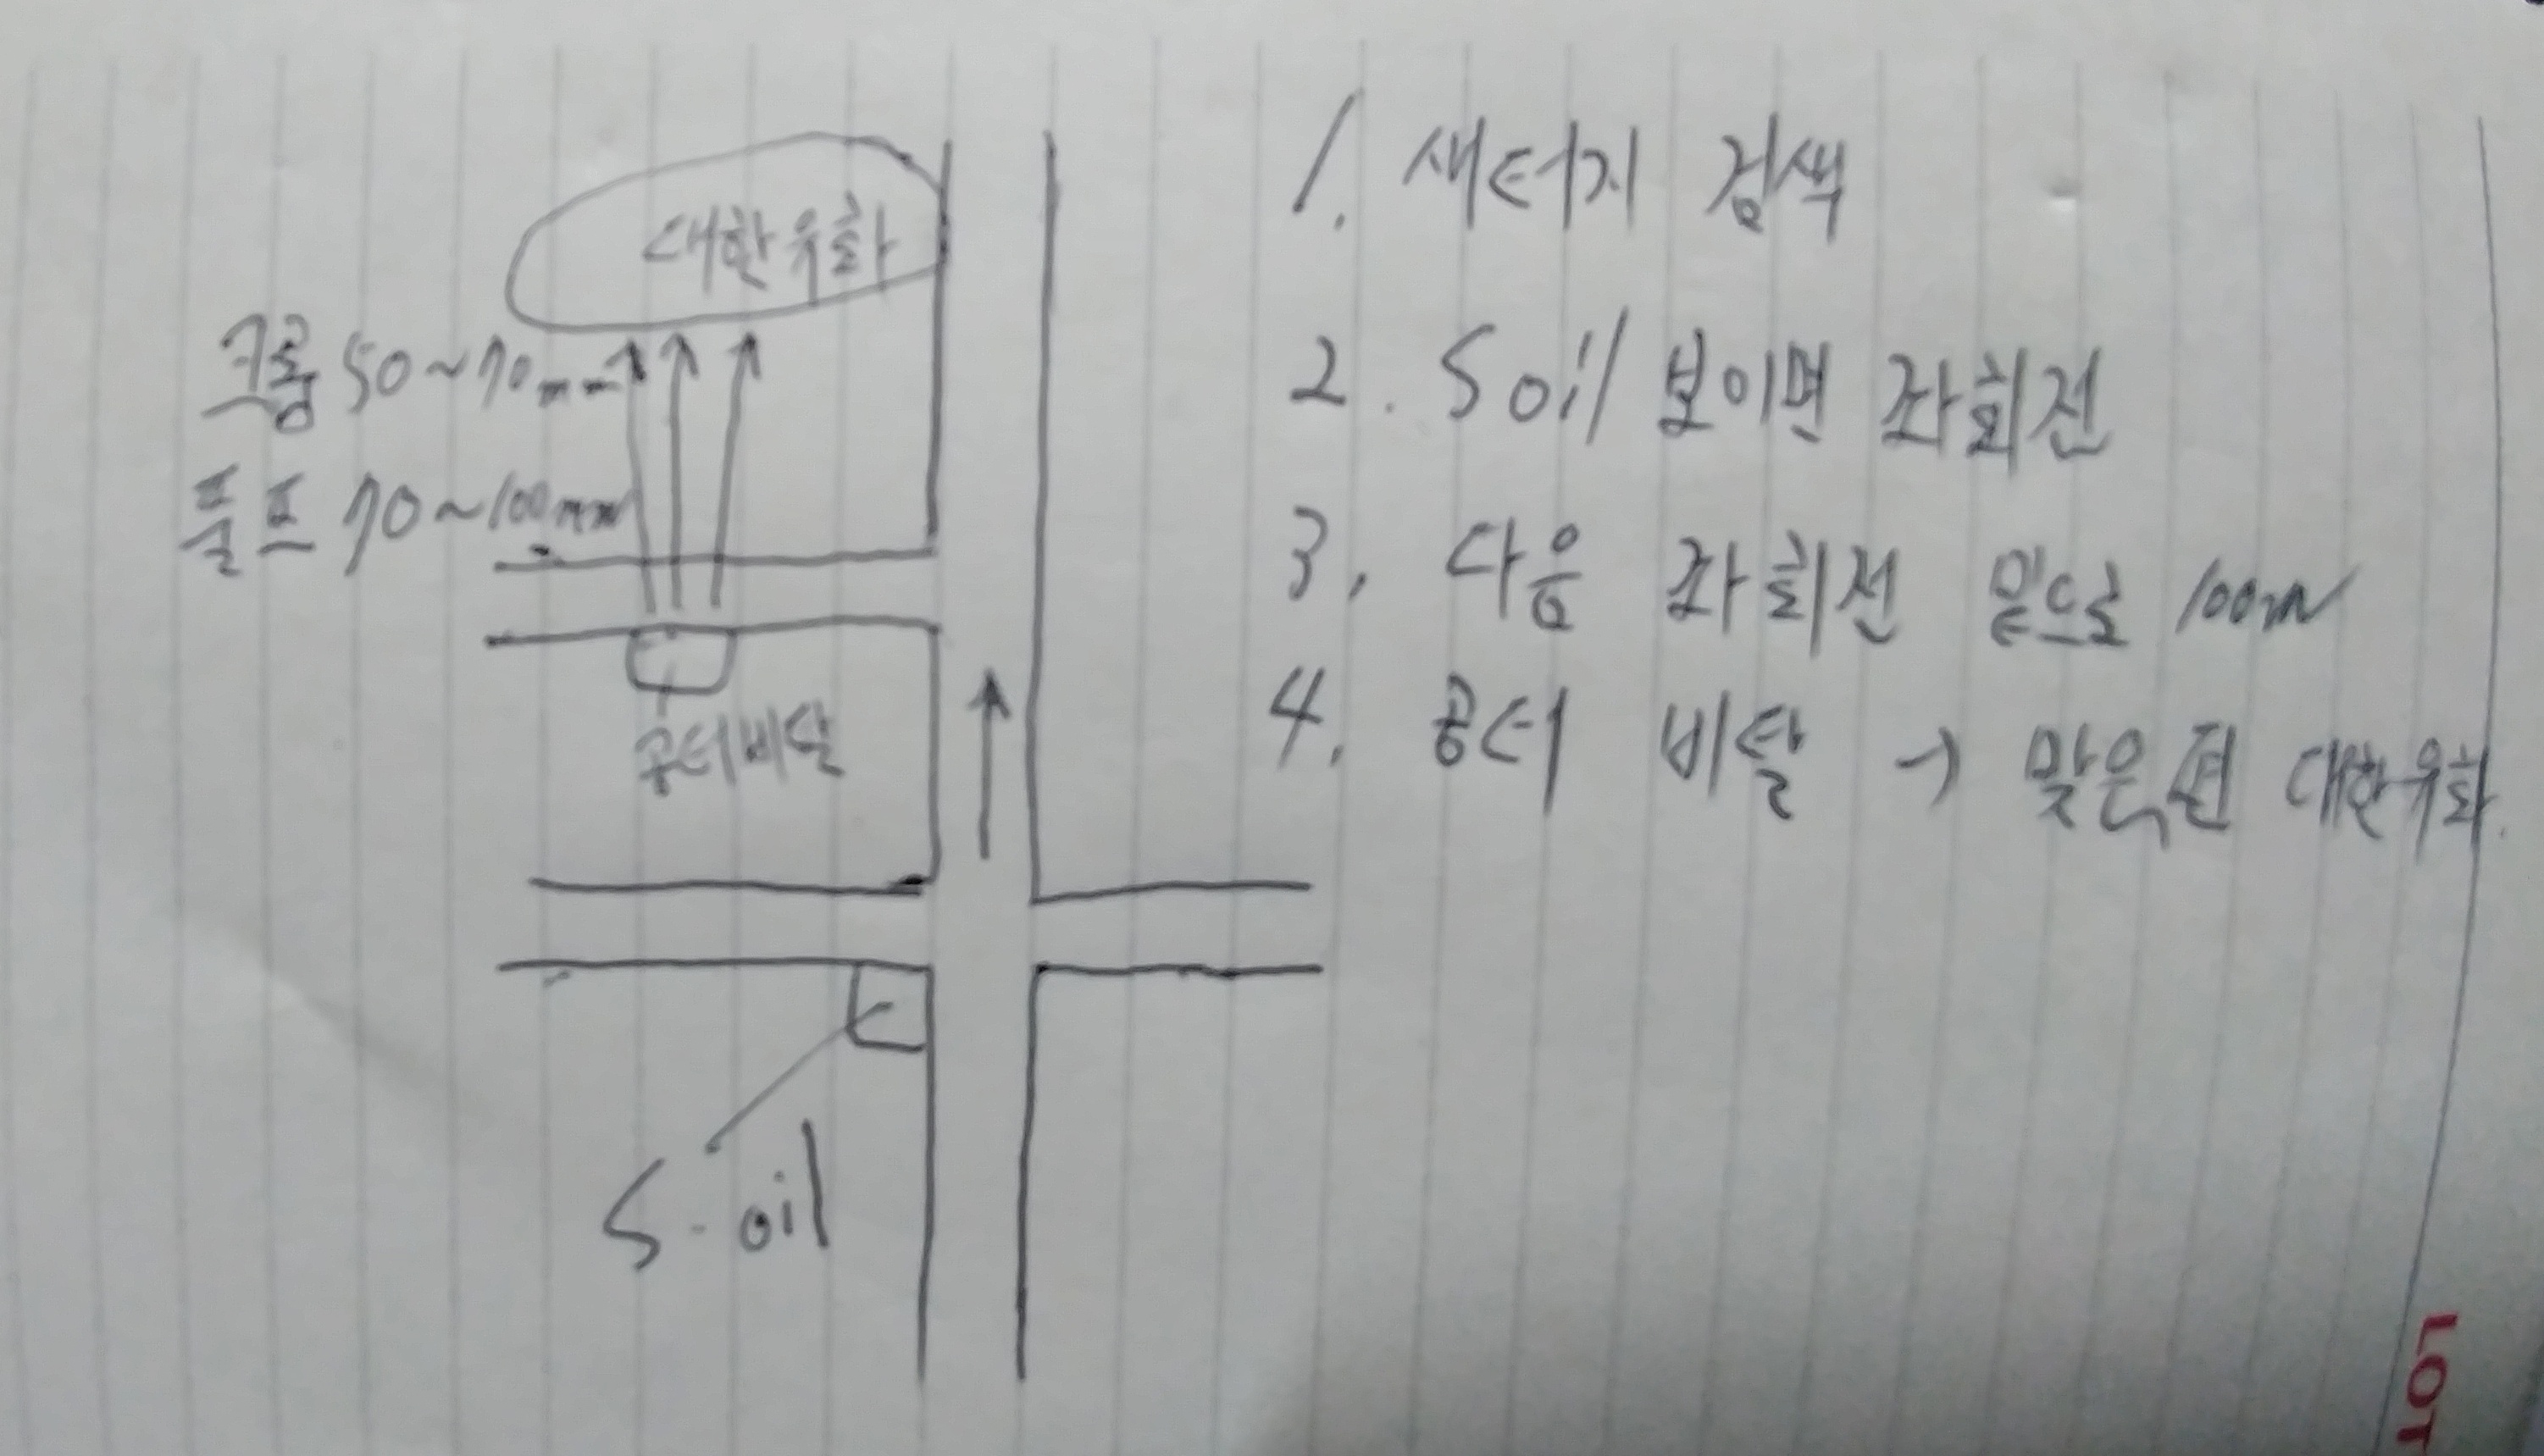 대한유화
크롭 50~70mm
풀프 70~100mm
공터비탈
S-oil
1. 새터지 검색
2. S oil 보이면 좌회전
3, 다음 좌회전 밑으로 100m
4, 공터 비탈 → 맞은편 대한유화.
LOT